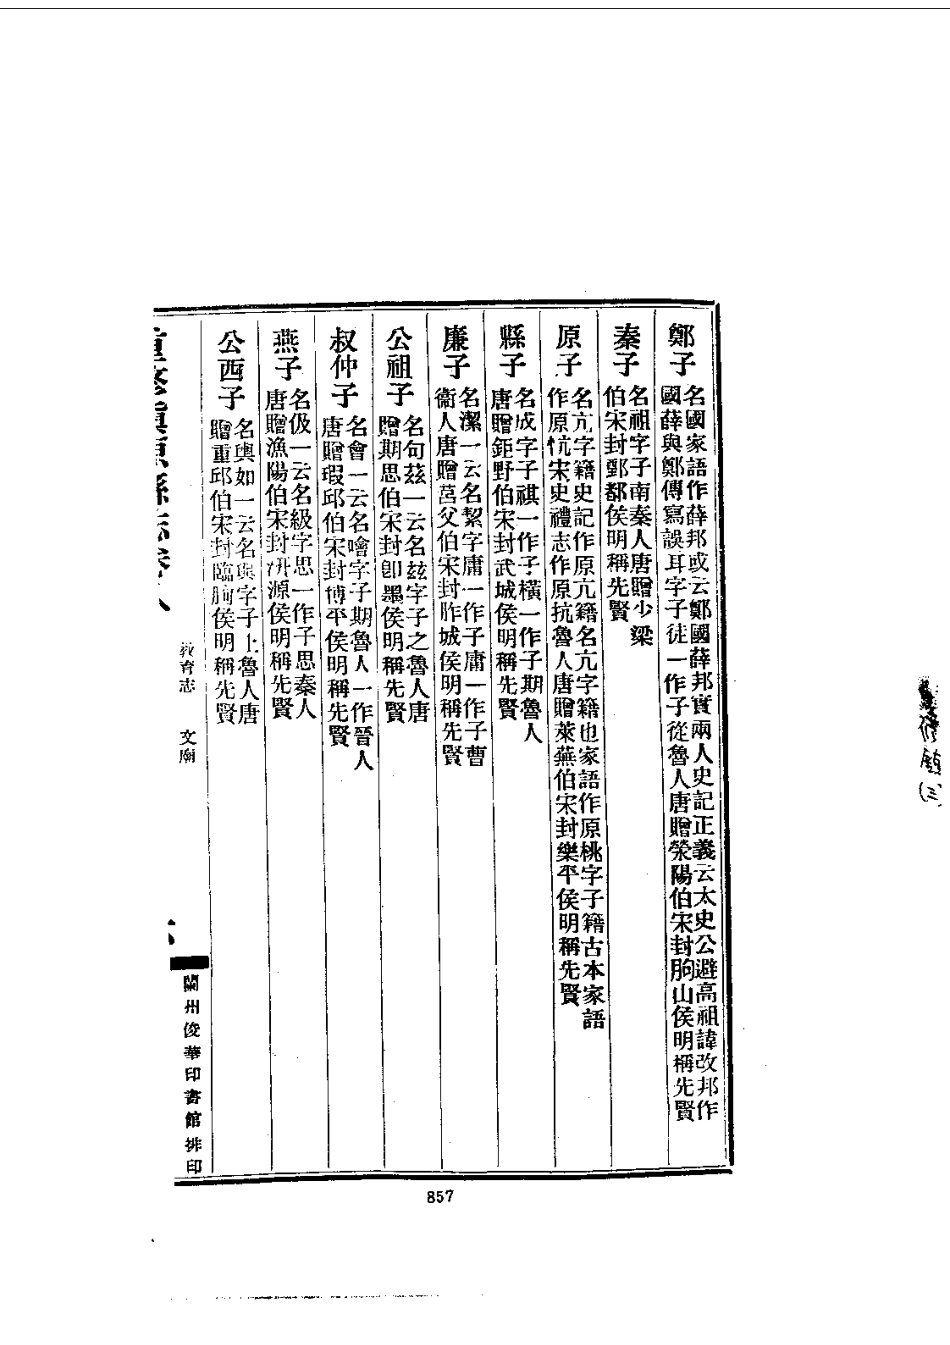 鄭子
名國家語作薛邦或云鄭國薛邦實兩人史記正義云太史公避高祖諱改邦作
國薛與鄭傳寫誤耳字子徒一作子從魯人唐贈滎陽伯宋封朐山侯明稱先賢
秦子
名祖字子南秦人唐贈少梁
伯宋封鄄都侯明稱先賢
原子
名亢字籍史記作原亢籍名亢字籍也家語作原桃字子籍古本家語
作原忼宋史禮志作原抗魯人唐贈萊蕪伯宋封樂平侯明稱先賢
縣子
名成字子祺一作子橫一作子期魯人
唐贈鉅野伯宋封武城侯明稱先賢
廉子
名潔一云名絜字庸一作子庸一作子曹
衞人唐贈莒父伯宋封胙城侯明稱先賢
公祖子
名句茲一云名玆字子之魯人唐
贈期思伯宋封卽墨侯明稱先賢
叔仲子
名會一云名噲字子期魯人一作晉人
唐贈瑕邱伯宋封博平侯明稱先賢
燕子
名伋一云名級字思一作子思秦人
唐贈漁陽伯宋封汧源侯明稱先賢
公西子
名輿如一云名與字子上魯人唐
贈重邱伯宋封臨朐侯明稱先賢
重修鎭原縣志卷八
教育志 文廟
六
蘭州俊華印書館排印
857
鎮(三)